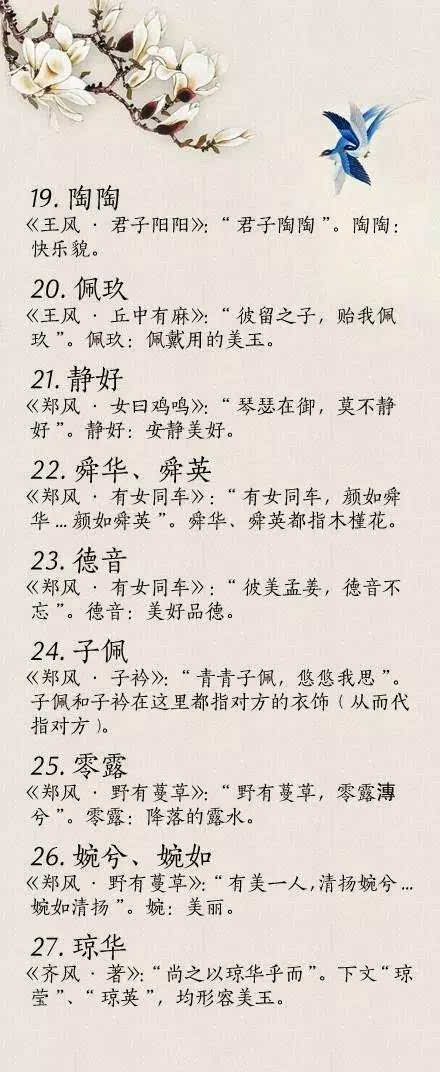 19. 陶陶
《王风 · 君子阳阳》：“君子陶陶”。陶陶：
快乐貌。
20. 佩玖
《王风 · 丘中有麻》：“彼留之子，贻我佩
玖”。佩玖：佩戴用的美玉。
21. 静好
《郑风 · 女曰鸡鸣》：“琴瑟在御，莫不静
好”。静好：安静美好。
22. 舜华、舜英
《郑风 · 有女同车》：“有女同车，颜如舜
华...颜如舜英”。舜华、舜英都指木槿花。
23. 德音
《郑风 · 有女同车》：“彼美孟姜，德音不
忘”。德音：美好品德。
24. 子佩
《郑风 · 子衿》：“青青子佩，悠悠我思”。
子佩和子衿在这里都指对方的衣饰（从而代
指对方）。
25. 零露
《郑风 · 野有蔓草》：“野有蔓草，零露漙
兮”。零露：降落的露水。
26. 婉兮、婉如
《郑风 · 野有蔓草》：“有美一人，清扬婉兮...
婉如清扬”。婉：美丽。
27. 琼华
《齐风 · 著》：“尚之以琼华乎而”。下文“琼
莹”、“琼英”，均形容美玉。